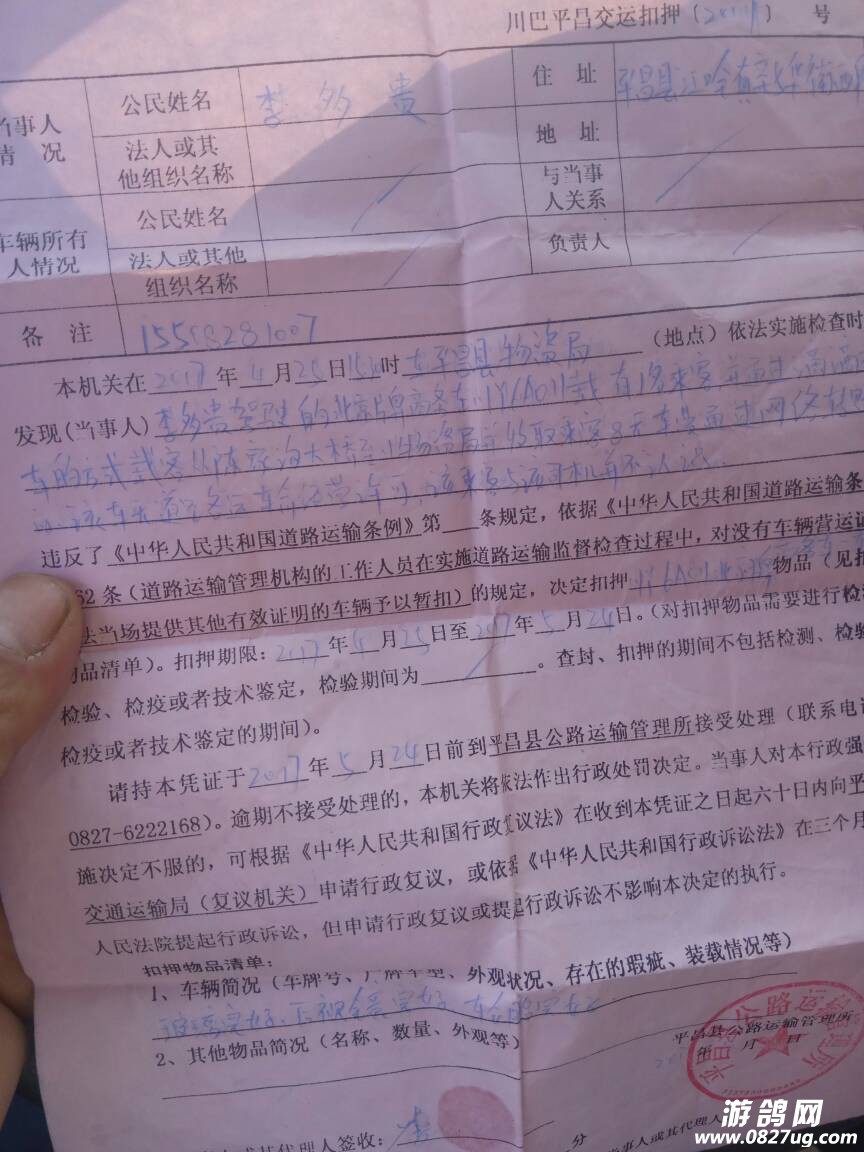 川巴平昌交运扣押〔2017〕 号
当事人情况 公民姓名 李多贵 住 址 平昌县江
法人或其他组织名称 地 址
车辆所有人情况 公民姓名 与当事人关系
法人或其他组织名称 负责人
备 注 15508281007
本机关在2017年4月25日15时 在平昌县物资局 (地点)依法实施检查时
发现(当事人)李多贵驾驶的北京牌 车 载有1名乘客并通过滴滴
车的方式载客从 大桥至物资局并收取乘客8元车费通过网络
该车无道路客运 经营许可,该乘客与该司机并不认识.
违反了《中华人民共和国道路运输条例》第 条规定,依据《中华人民共和国道路运输条
62条(道路运输管理机构的工作人员在实施道路运输监督检查过程中,对没有车辆营运证
法当场提供其他有效证明的车辆予以暂扣)的规定,决定扣押 物品(见扣
物品清单)。扣押期限:2017年4月25日至2017年5月24日。(对扣押物品需要进行检测
检验、检疫或者技术鉴定,检验期间为 。查封、扣押的期间不包括检测、检验
检疫或者技术鉴定的期间)。
请持本凭证于2017年5月24日前到平昌县公路运输管理所接受处理(联系电话
0827-6222168)。逾期不接受处理的,本机关将依法作出行政处罚决定。当事人对本行政强
施决定不服的,可根据《中华人民共和国行政复议法》在收到本凭证之日起六十日内向平
交通运输局(复议机关)申请行政复议,或依据《中华人民共和国行政诉讼法》在三个月
人民法院提起行政诉讼,但申请行政复议或提起行政诉讼不影响本决定的执行。
扣押物品清单:
1、车辆简况(车牌号、厂牌车型、外观状况、存在的瑕疵、装载情况等)
完好
2、其他物品简况(名称、数量、外观等)
平昌县公路运输管理所
年 月 日
或其代理人签收: 李
分
当事人或其代理人
游鸽网
www.0827ug.com